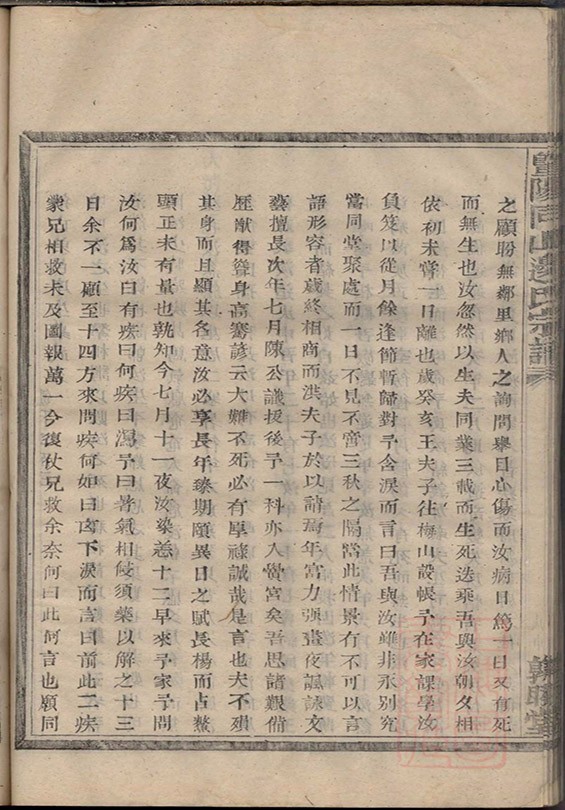 暨陽同山邊氏宗譜
之顧盼無鄰里鄉人之詢問舉目心傷而汝病日篤一日又有死
而無生也汝忽然以生夫同業三載而生死迭乘吾與汝朝夕相
依初未嘗一日離也歲癸亥王夫子往梅山設帳予在家課學汝
負笈以從月餘逢節暫歸對予含淚而言曰吾與汝雖非永別究
當同堂聚處而一日不見不啻三秋之隔當此情景有不可以言
語形容者歲終相商而洪夫子於以請焉年富力强晝夜諷詠文
藝擅長次年七月陳公議援後予一科亦入黌宮矣吾思諸艱備
歷猷得發身高騫諺云大難不死必有厚祿誠哉是言也夫不殞
其身而且顯其名意汝必享長年臻期頤異日之賦長楊而占鰲
頭正未有量也孰知今七月十一夜汝染恙十二早來予家予問
汝何爲汝曰有疾曰何疾曰瀉予曰暑氣相侵須藥以解之十三
日余不一顧至十四方來問疾何如曰亟下淚而言曰前此二疾
衆兄相救未及圖報萬一今復仗兄救余奈何曰此何言也願同